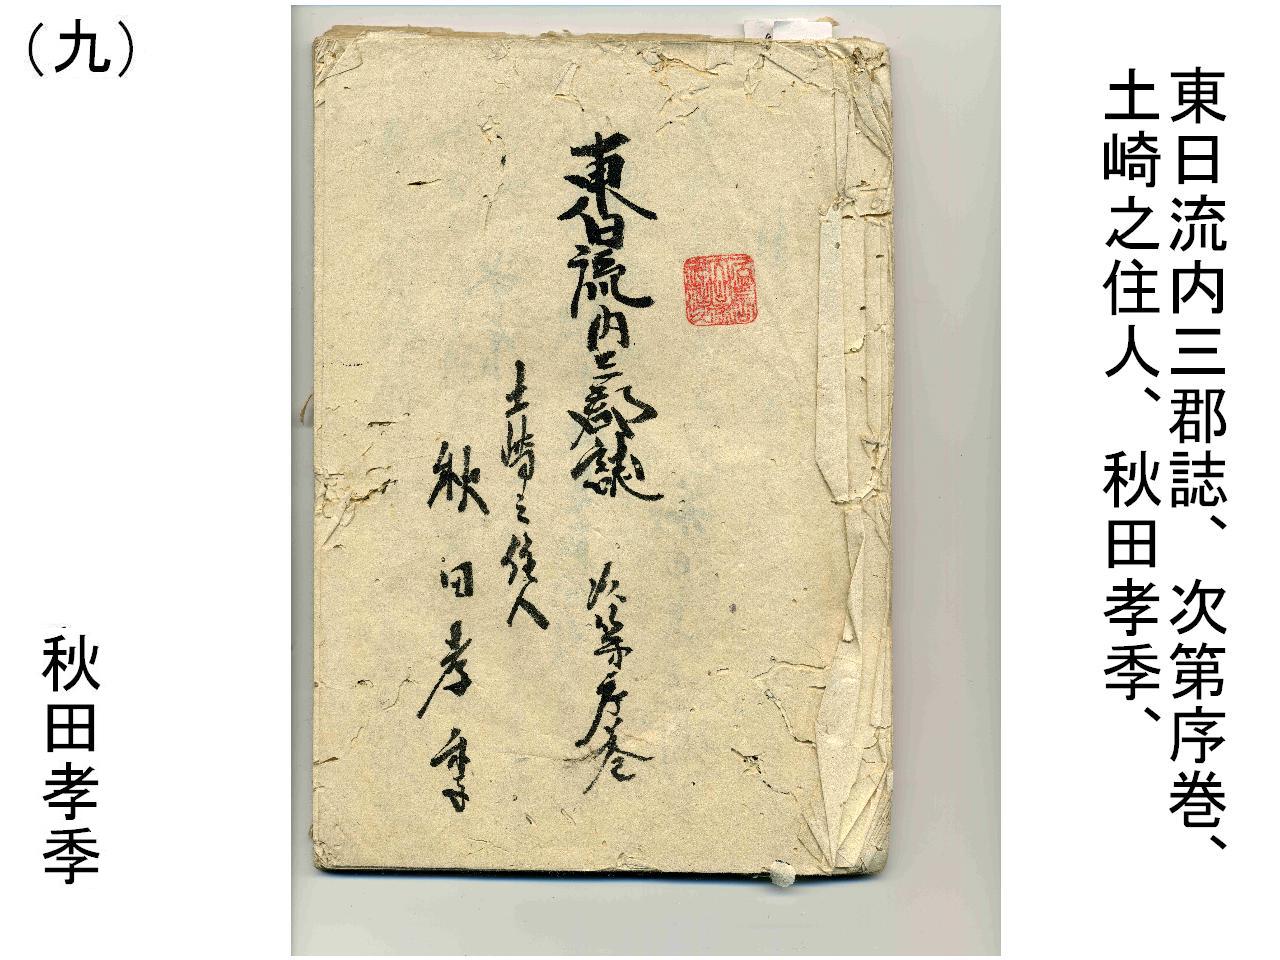 東日流内三郡誌、次第序巻、
土崎之住人、秋田孝季、
東日流内三郡誌 次第序巻
土崎之住人
秋田孝季
（九）
秋田孝季